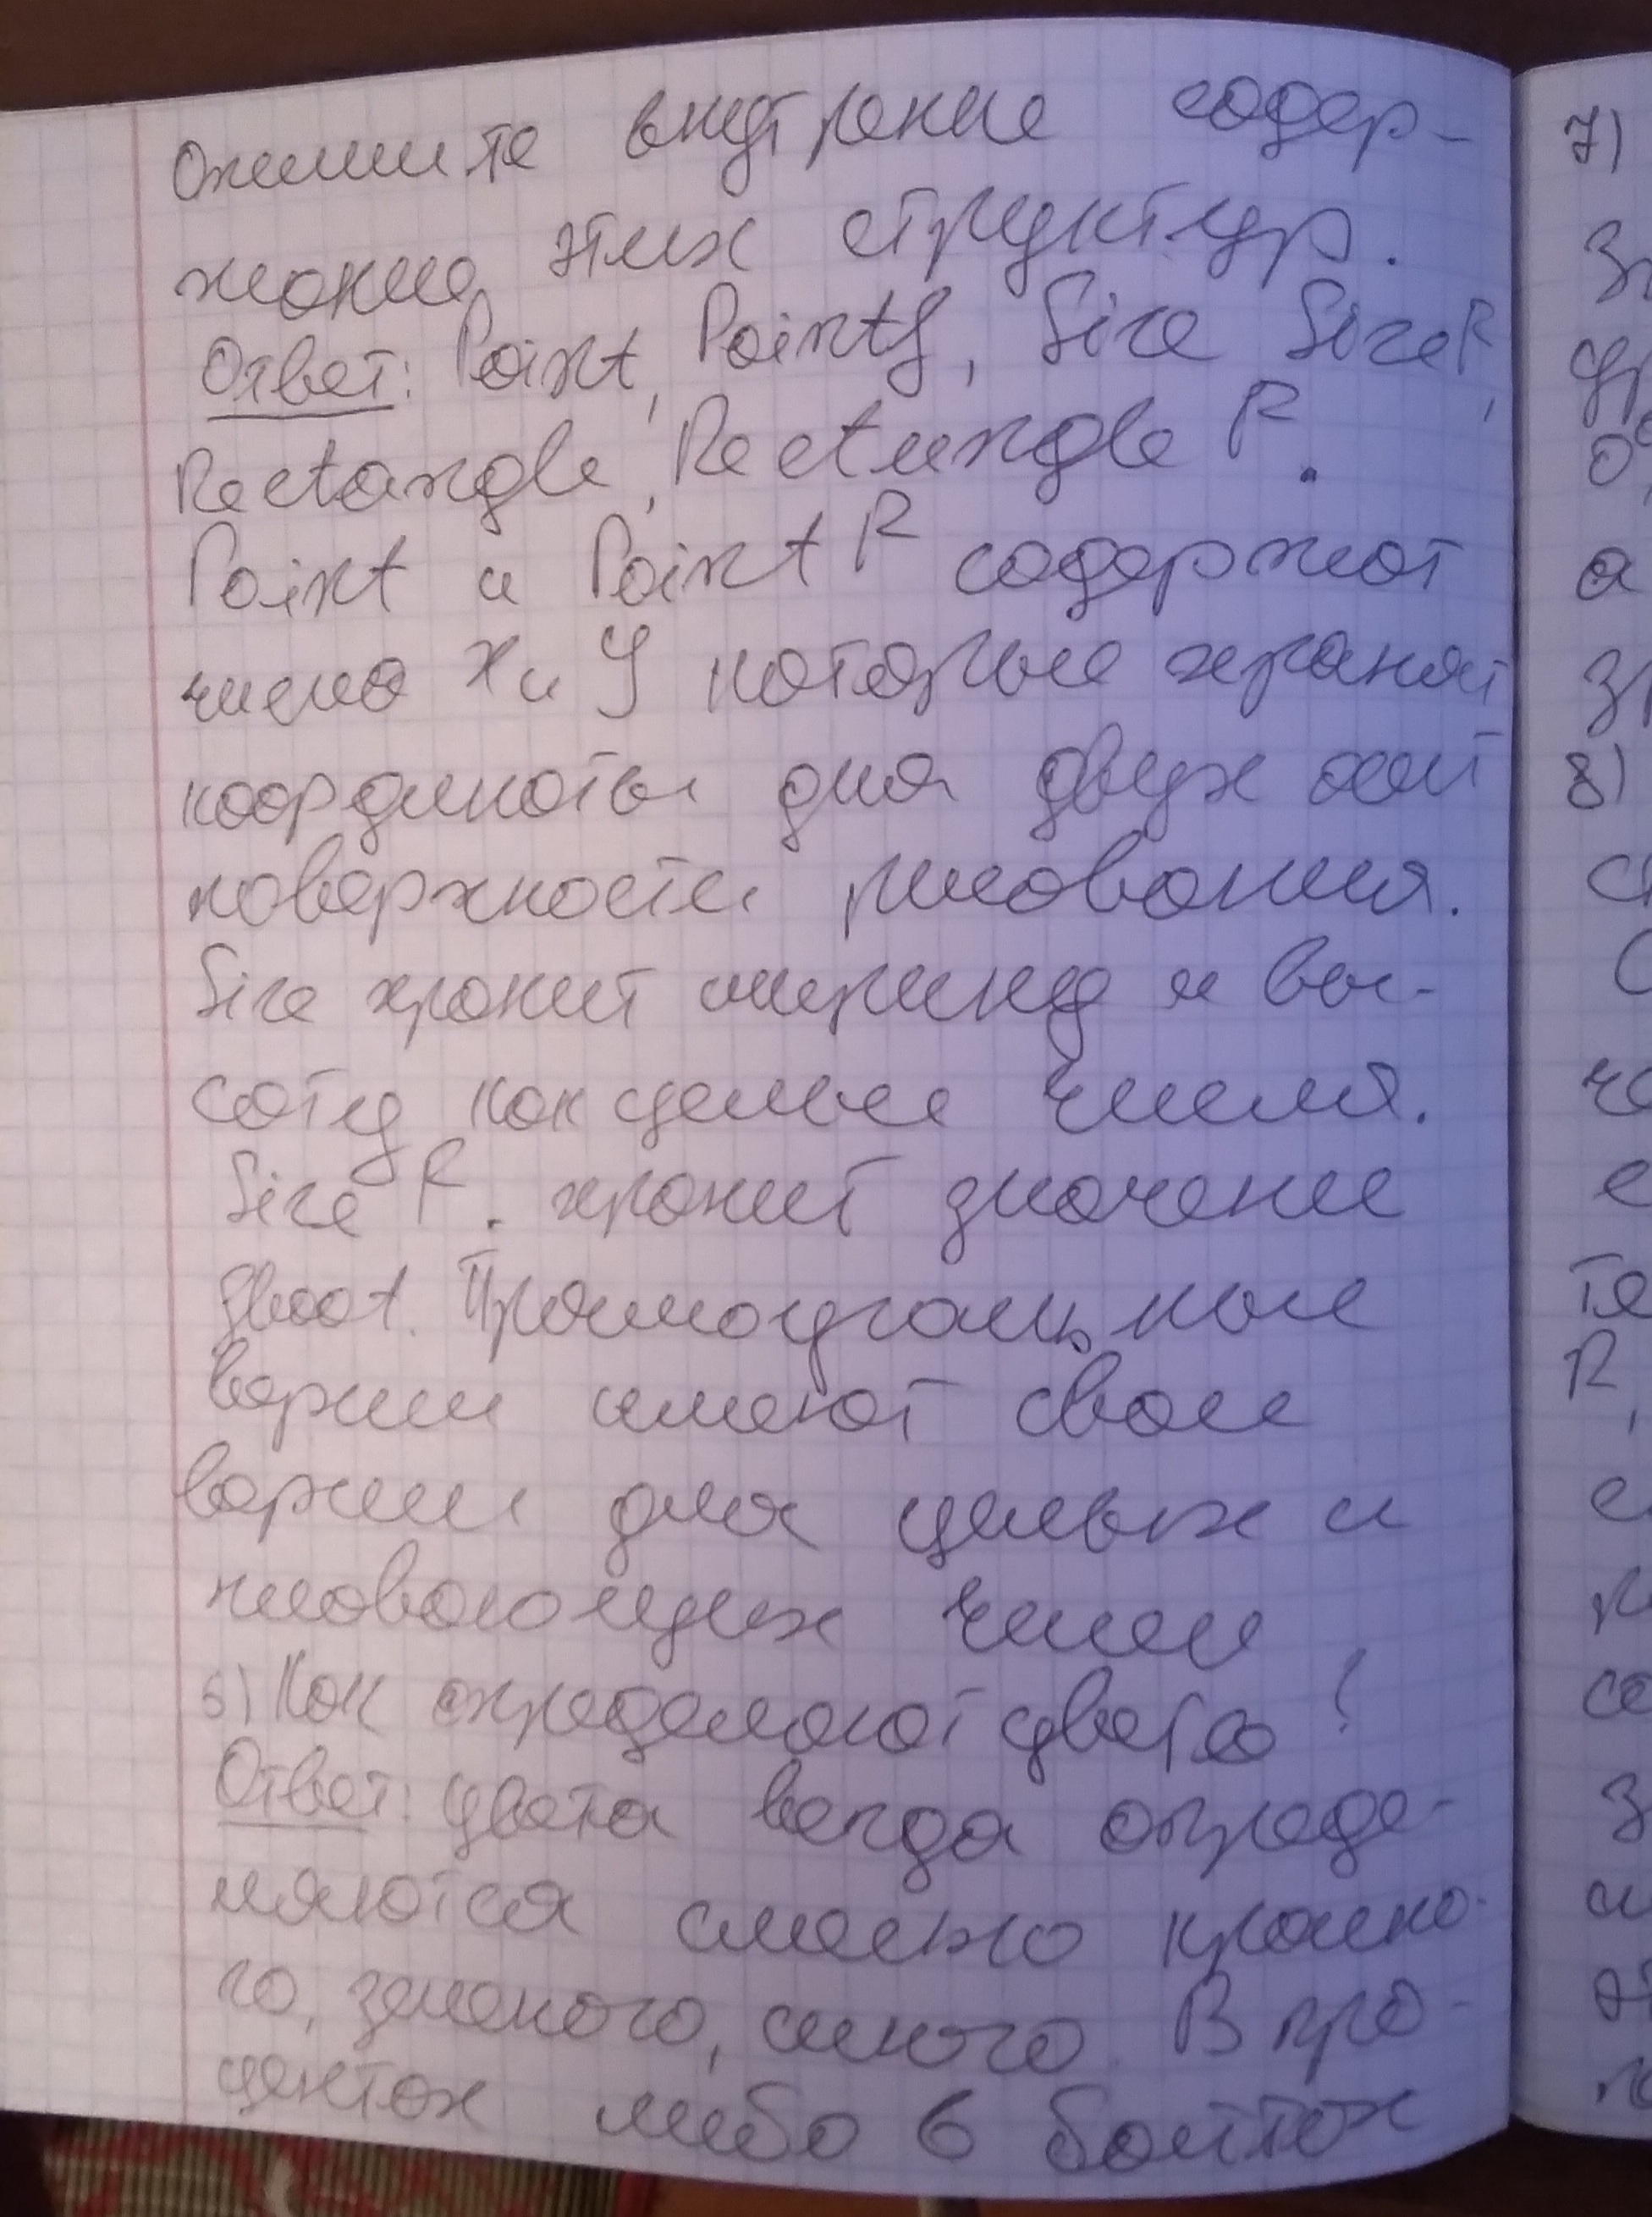 Опишите внутрение содер-
жание этих структур.
Ответ: Point, Pointf, Size SizeF,
Rectangle, Rectungle F.
Point и Point F содержат
числа X и Y которые хранят
координаты для двух осей
поверхности рисования.
Size хранит ширину и вы-
соту как целые числа.
Size F. хранит значение
float. Прямоугольные
версии имеют свои
версии для целых и
чисел
6) Как определяют цвета?
Ответ: цвета всегда опреде-
ляются смесью красно-
го, зеленого, синего. В про-
центах либо в байтах
7)
8)